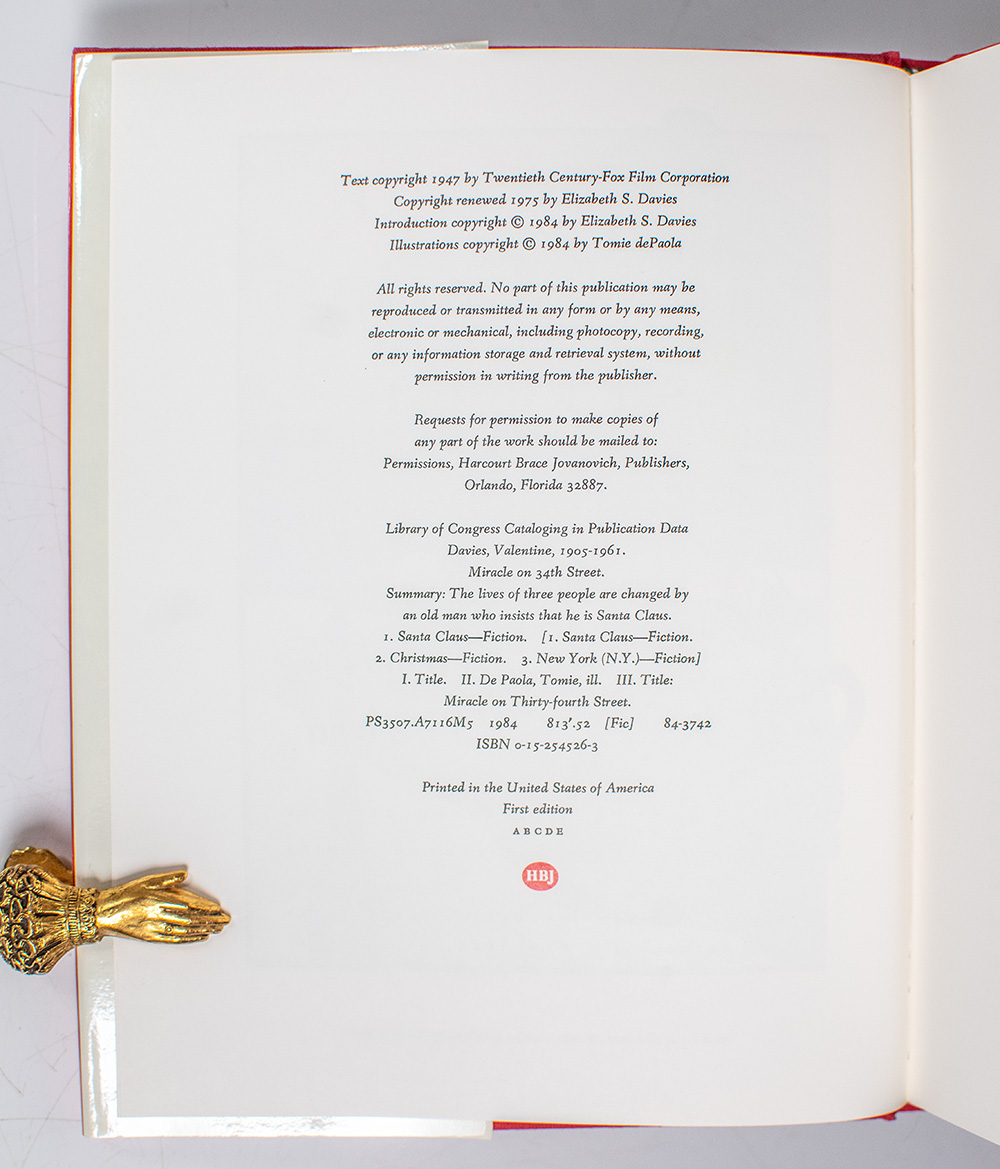 Text copyright 1947 by Twentieth Century-Fox Film Corporation
Copyright renewed 1975 by Elizabeth S. Davies
Introduction copyright © 1984 by Elizabeth S. Davies
Illustrations copyright © 1984 by Tomie dePaola
All rights reserved. No part of this publication may be
reproduced or transmitted in any form or by any means,
electronic or mechanical, including photocopy, recording,
or any information storage and retrieval system, without
permission in writing from the publisher.
Requests for permission to make copies of
any part of the work should be mailed to:
Permissions, Harcourt Brace Jovanovich, Publishers,
Orlando, Florida 32887.
Library of Congress Cataloging in Publication Data
Davies, Valentine, 1905-1961.
Miracle on 34th Street.
Summary: The lives of three people are changed by
an old man who insists that he is Santa Claus.
1. Santa Claus—Fiction. [1. Santa Claus—Fiction.
2. Christmas—Fiction. 3. New York (N.Y.)—Fiction]
I. Title. II. De Paola, Tomie, ill. III. Title:
Miracle on Thirty-fourth Street.
PS3507.A7116M5 1984 813'.52 [Fic] 84-3742
ISBN 0-15-254526-3
Printed in the United States of America
First edition
A B C D E
HBJ